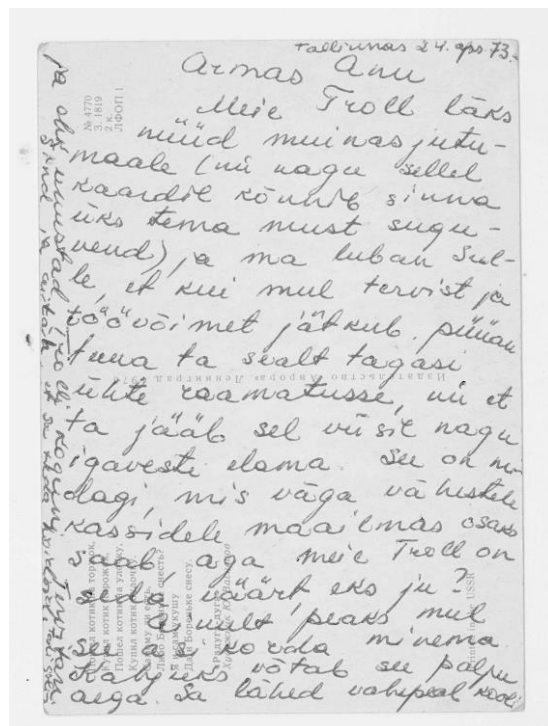 Tallinnas 24. apr. 73.
Armas Anu
Meie Troll läks
nüüd muinasjutu-
maale (nii nagu sellel
kaardil kõnnib sinna
üks tema must sugu-
vend), ja ma luban Sul-
le, et kui mul tervist ja
töövõimet jätkub, püüan
tuua ta sealt tagasi
ühte raamatusse, nii et
ta jääb sel viisil nagu
igaveste elama. See on mi-
dagi, mis väga vähestele
kassidele maailmas osaks
saab, aga meie Troll on
seda väärt, eks ju?
peaks mul
see asi korda minema.
Kahjuks võtab see palju
aega. Sa lähed vahepeal kooli
ja ehk unustad Trolli
Sind ja aitäh, et sa teda
№ 4770
З. 1819
2 к.
ЛФОП 1
Издательство «Аврора» Ленинград
Пошел котик на торжок,
Купил котик пирожок,
Пошел котик на улочку,
Купил котик булочку.
Самому ли есть,
Либо Бореньке снесть?
Я и сам укушу
Да и Бореньке снесу.
USSR